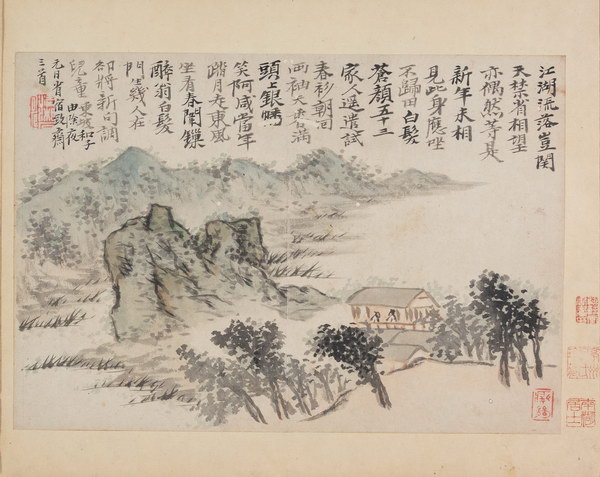 江湖流落豈関
天禁省相望
亦偶然等是
新年未相
見此身應坐
不歸田白髮
蒼顏五十三
家人遥遣試
春衫朝回
兩袖天香滿
頭上銀幡
笑阿咸當年
踏月走東風
坐看春闈鏁
醉翁白髮
門生幾人在
却將新句調
兒童 東坡和子
由除夜
元日省宿致齋
三首